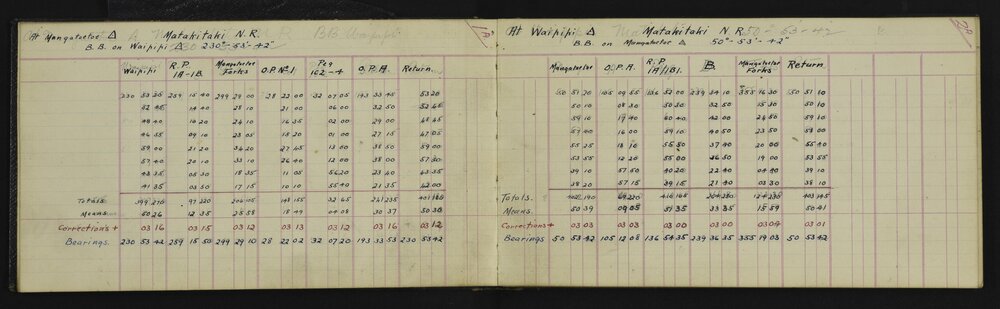 At Mangatuetoe △ Matakitaki N.R. 1A
B.B. on Waipipi △ 230°-53'-42"
Waipipi R.P. 1A-1B Mangatuetoe Forks O.P. No 1 Peg 162-4 O.P.A. Return
230 53 35 259 15 40 299 29 00 28 22 00 32 07 05 193 33 45 53 20
52 45 14 40 28 10 21 00 06 00 32 50 52 45
48 40 10 20 24 10 16 35 02 00 29 00 48 45
46 55 09 10 23 05 15 20 01 00 27 15 47 05
59 00 21 20 34 20 27 45 13 00 38 50 59 00
57 40 20 10 33 10 26 40 12 00 38 00 57 30
43 35 05 30 18 35 11 05 56 20 23 40 43 35
41 35 03 50 17 15 10 10 55 40 21 35 42 00
Totals 399 210 97 220 148 155 32 65 241 235
Means 50 26 12 35 25 58 18 49 04 08 30 37 50 30
Corrections + 03 16 03 15 03 12 03 13 03 12 03 16 03 12
Bearings. 230 53 42 259 15 50 299 29 10 28 22 02 32 07 20 193 33 53 230 53 42
At Waipipi △ Matakitaki N.R. 2A
B.B. on Mangatuetoe △ 50°-53'-42"
Mangatuetoe O.P. A. R.P. 1A/1B1. B. Mangatuetoe Forks Return
50 51 20 105 09 55 136 52 00 239 34 10 355 16 30 50 51 50
50 10 08 30 50 30 32 50 15 30 50 10
59 10 19 40 60 40 42 00 24 50 59 10
57 40 16 00 59 10 40 50 23 50 58 00
55 25 18 10 55 50 37 40 20 00 55 40
53 55 12 20 55 00 36 50 19 00 53 55
39 10 57 50 40 20 22 40 04 40 39 10
38 20 57 15 39 15 21 40 03 30 38 10
Totals. 403 145
Means. 50 39 09 05 51 35 33 35 15 59 50 41
Corrections + 03 03 03 03 03 00 03 00 03 04 03 01
Bearings 50 53 42 105 12 08 136 54 35 239 36 35 355 19 03 50 53 42